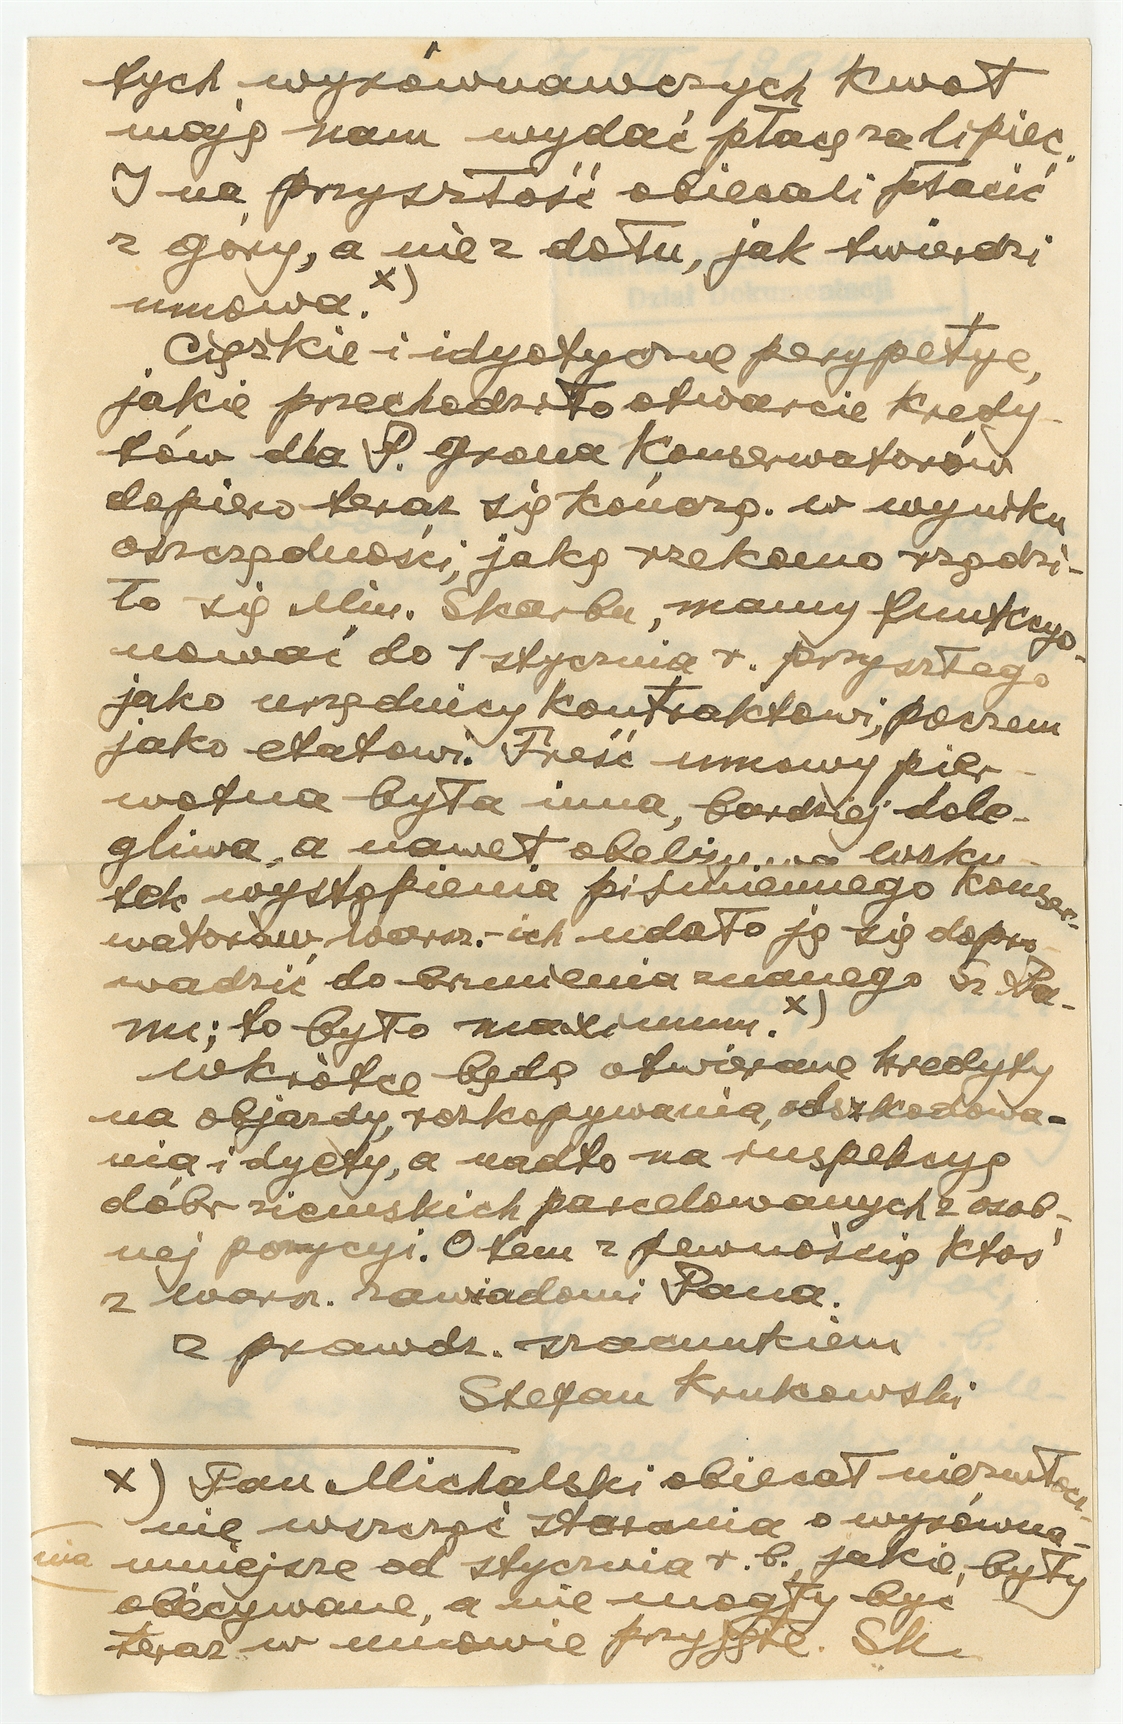 tych wyrównawczych kwot
mają nam wydać płacę za lipiec.
I na przyszłość obiecali płacić
z góry, a nie z dołu, jak twierdzi
umowa.x)
Ciężkie i idyotyczne perypetye,
jakie przechodziło otwarcie kredy-
tów dla P. Grona Konserwatorów
dopiero teraz się kończą. w wyniku
oszczędności, jaką rzekomo rządzi-
ło się Min. Skarbu, mamy funkcyo-
nować do 1 stycznia r. przyszłego
jako urzędnicy kontraktowi, poczem
jako etatowi. Treść umowy pier-
wotna była inna, bardziej dole-
gliwa, a nawet obelżywa wsku-
tek wystąpienia piśmiennego konser-
watorów warsz.-ich udało ją się dopro-
wadzić do brzmienia znanego Sz. Pa-
nu; to było maximum.x)
Wkrótce będą otwierane kredyty
na objazdy, rozkopywania, odszkodowa-
nia i dyety, a nadto na inspekcyę
dóbr ziemskich parcelowanych z osob-
nej pozycyi. O tem z pewnością ktoś
z warsz. zawiadomi Pana.
Z prawdz. szacunkiem
Stefan Krukowski
x) Pan Michalski obiecał niezwłocz-
nie wszcząć starania o wyrówna-
nia mniejsze od stycznia r. b., jakie były
obiecywane, a nie mogły być
teraz w umowie przyjęte. SK